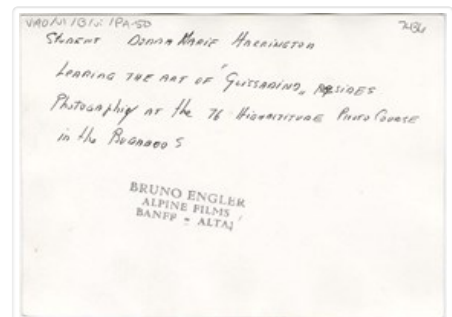 V240/VI/B/ii/PA-50
Student Donna Marie Harrington
Learing the art of "Glissading" Besides
Photography at the 76 Highaltitude Photo Course
in the Bugaboos
BRUNO ENGLER
ALPINE FILMS
BANFF - ALTA